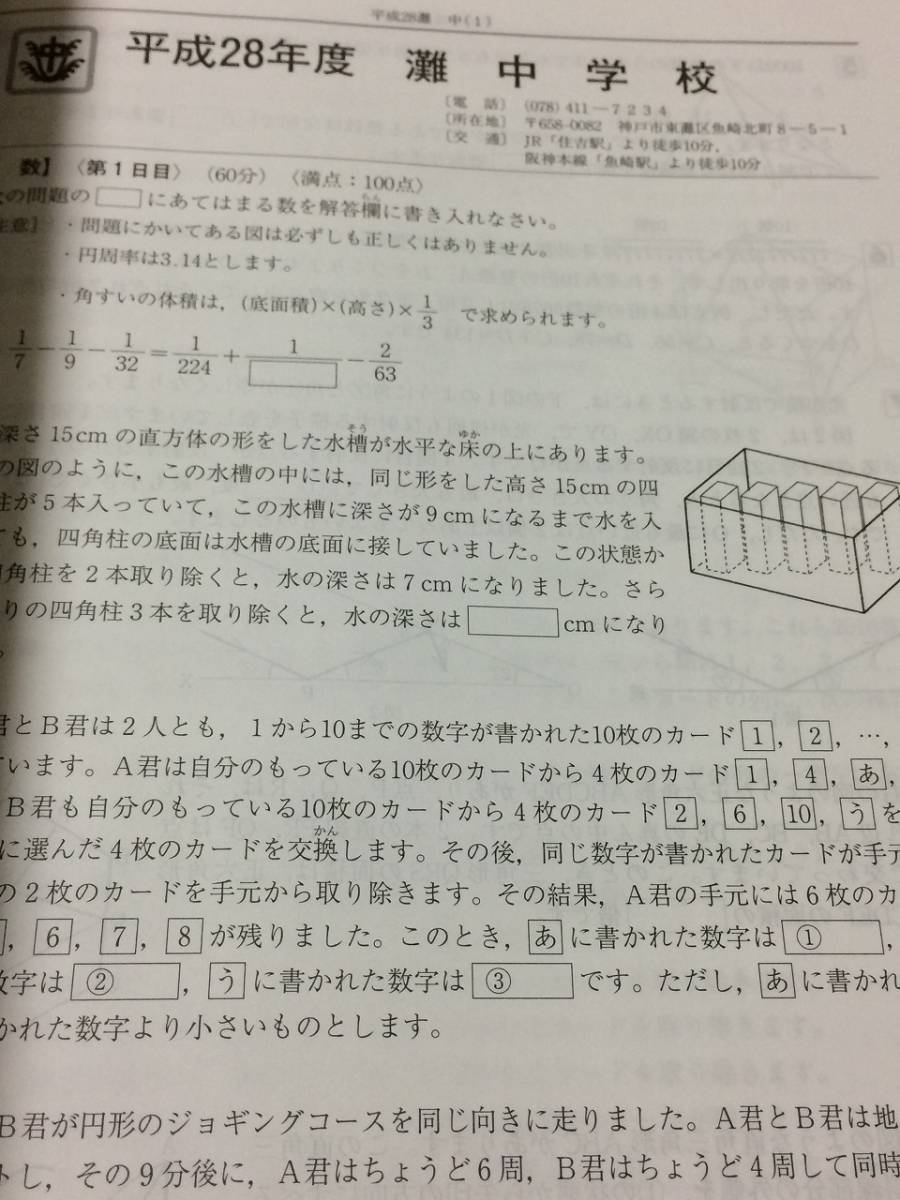 平成28灘 中(1)
中
平成28年度 灘 中 学 校
〔電 話〕 (078) 411-7234
〔所在地〕 〒658-0082 神戸市東灘区魚崎北町8-5-1
〔交 通〕 JR「住吉駅」より徒歩10分,
阪神本線「魚崎駅」より徒歩10分
数】〈第1日目〉(60分)〈満点：100点〉
の問題の□にあてはまる数を解答欄に書き入れなさい。
注意〕・問題にかいてある図は必ずしも正しくはありません。
・円周率は3.14とします。
・角すいの体積は，(底面積)×(高さ)×1/3 で求められます。
1/7 − 1/9 − 1/32 = 1/224 + 1/□ − 2/63
深さ15cmの直方体の形をした水槽が水平な床の上にあります。
の図のように，この水槽の中には，同じ形をした高さ15cmの四
柱が5本入っていて，この水槽に深さが9cmになるまで水を入
ても，四角柱の底面は水槽の底面に接していました。この状態か
角柱を2本取り除くと，水の深さは7cmになりました。さら
りの四角柱3本を取り除くと，水の深さは□cmになり
。
君とB君は2人とも，1から10までの数字が書かれた10枚のカード1，2，…，
ています。A君は自分のもっている10枚のカードから4枚のカード1，4，あ，
B君も自分のもっている10枚のカードから4枚のカード2，6，10，うを
に選んだ4枚のカードを交換します。その後，同じ数字が書かれたカードが手元
の2枚のカードを手元から取り除きます。その結果，A君の手元には6枚のカ
，6，7，8が残りました。このとき，あに書かれた数字は①，
数字は②，うに書かれた数字は③です。ただし，あに書かれ
かれた数字より小さいものとします。
B君が円形のジョギングコースを同じ向きに走りました。A君とB君は地
トし，その9分後に，A君はちょうど6周，B君はちょうど4周して同時